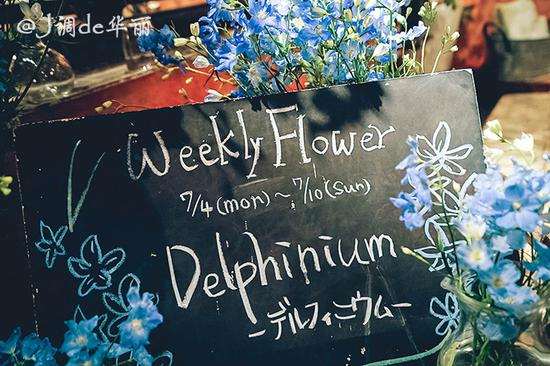 @J调de华丽
Weekly Flower
7/4(mon)~7/10(sun)
Delphinium
-デルフィニウム-